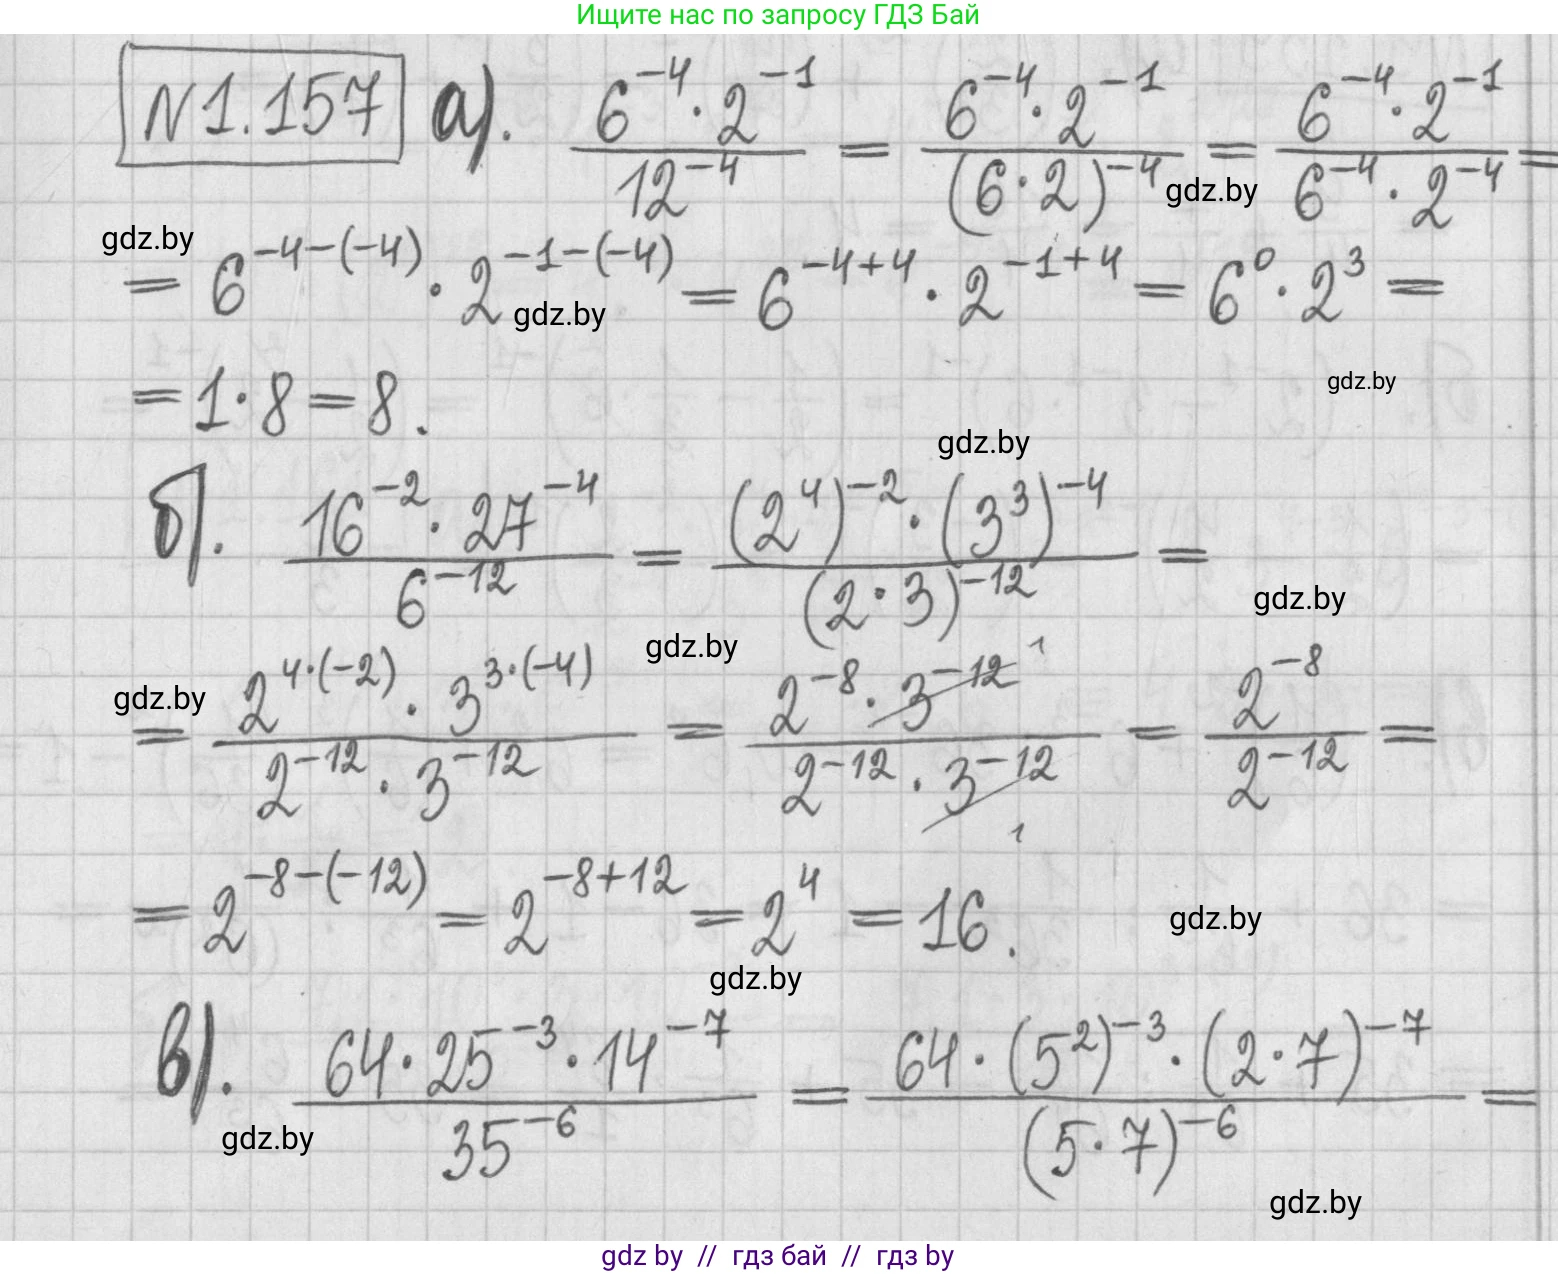 Ищите нас по запросу ГДЗ Бай
N1.157 а). 6^{-4}·2^{-1} / 12^{-4} = 6^{-4}·2^{-1} / (6·2)^{-4} = 6^{-4}·2^{-1} / 6^{-4}·2^{-4} =
gdz.by
gdz.by
= 6^{-4-(-4)}·2^{-1-(-4)} = 6^{-4+4}·2^{-1+4} = 6^0·2^3 =
gdz.by
= 1·8 = 8.
gdz.by
gdz.by
б). 16^{-2}·27^{-4} / 6^{-12} = (2^4)^{-2}·(3^3)^{-4} / (2·3)^{-12} =
gdz.by
gdz.by
gdz.by
= 2^{4·(-2)}·3^{3·(-4)} / 2^{-12}·3^{-12} = 2^{-8}·3^{-12} 1 / 2^{-12}·3^{-12} 1 = 2^{-8} / 2^{-12} =
= 2^{-8-(-12)} = 2^{-8+12} = 2^4 = 16.
gdz.by
gdz.by
в). 64·25^{-3}·14^{-7} / 35^{-6} = 64·(5^2)^{-3}·(2·7)^{-7} / (5·7)^{-6} =
gdz.by
gdz.by
gdz by // гдз бай // гдз by